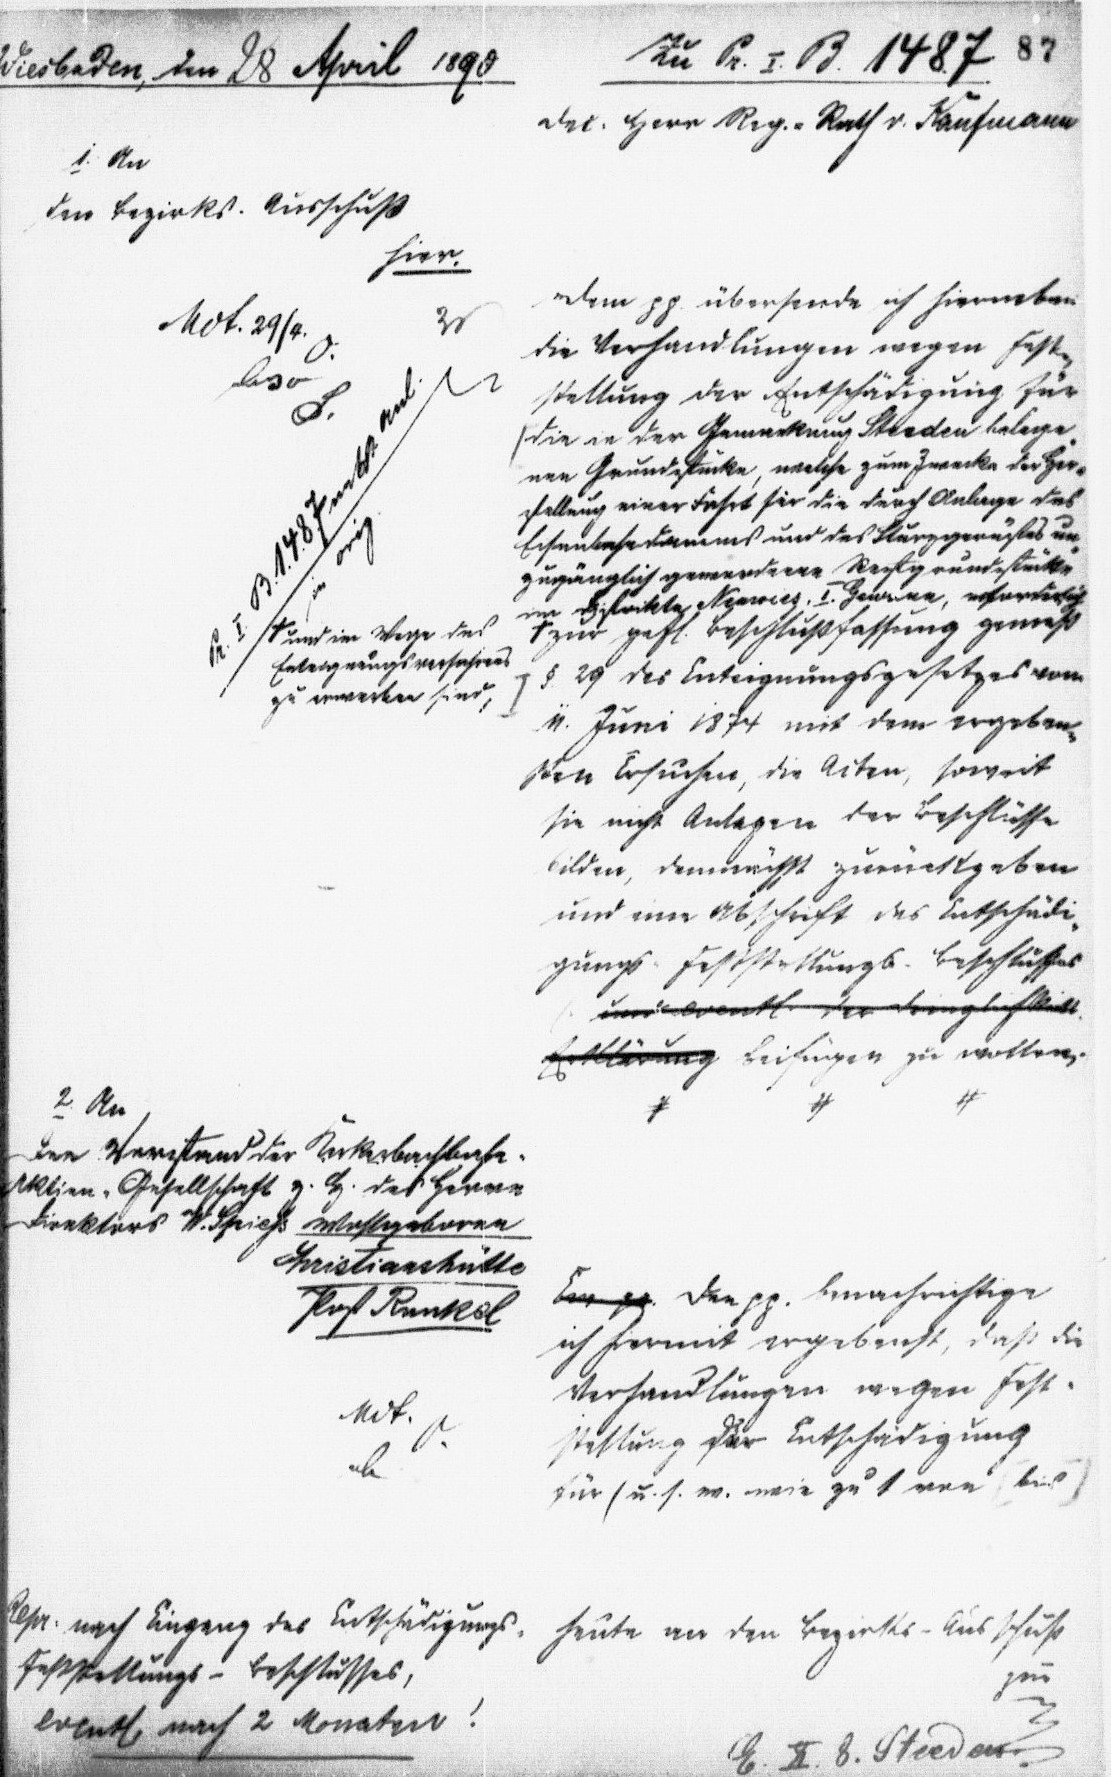 Wiesbaden, den 28 April 1890
Zu Pr. I. B. 1487.
87
Dec. Herr Reg.-Rath v. Kaufmann
1. An
den Bezirks-Ausschuß
hier.
Mdt. 29/4.
Pr. I B. 1487 nebst Anl.
in orig.
Dem pp. übersende ich hierneben
die Verhandlungen wegen Fest-
stellung der Entschädigung für
(die in der Gemarkung Steeden belege-
nen Grundstücke, welche zum Zwecke der Her-
stellung einer Fahrt für die durch Anlage des
Eisenbahndammes und des Sturzgerüstes un-
zugänglich gewordenen Restgrundstücke
im Distrikte I. Gewann, erforderlich
und im Wege des
Enteignungsverfahrens
zu erwerben sind,
zur gefl. Beschlußfassung gemäß
§ 29 des Enteignungsgesetzes vom
11. Juni 1874 mit dem ergeben-
sten Ersuchen, die Akten, soweit
sie nicht Anlagen der Beschlüsse
bilden, demnächst zurückgeben
und eine Abschrift des Entschädi-
gungs-Feststellungs-Beschlusses
und eventl. der Dringlichkeits-
Erklärung beifügen zu wollen.
2. An
den Vorstand der Kerkerbachbahn-
Aktien-Gesellschaft z. H. des Herrn
Direktors W. Spieß Wohlgeboren
Christianshütte
Post Runkel
Den pp. benachrichtige
ich hiermit ergebenst, daß die
Verhandlungen wegen Fest-
stellung der Entschädigung
für (u. s. w. wie zu 1 von ( bis )
Mdt.
Repr. nach Eingang des Entschädigungs-
Feststellungs-Beschlusses,
eventl. nach 2 Monaten!
heute an den Bezirks-Ausschuß
zur
E. II. 8. Steeden